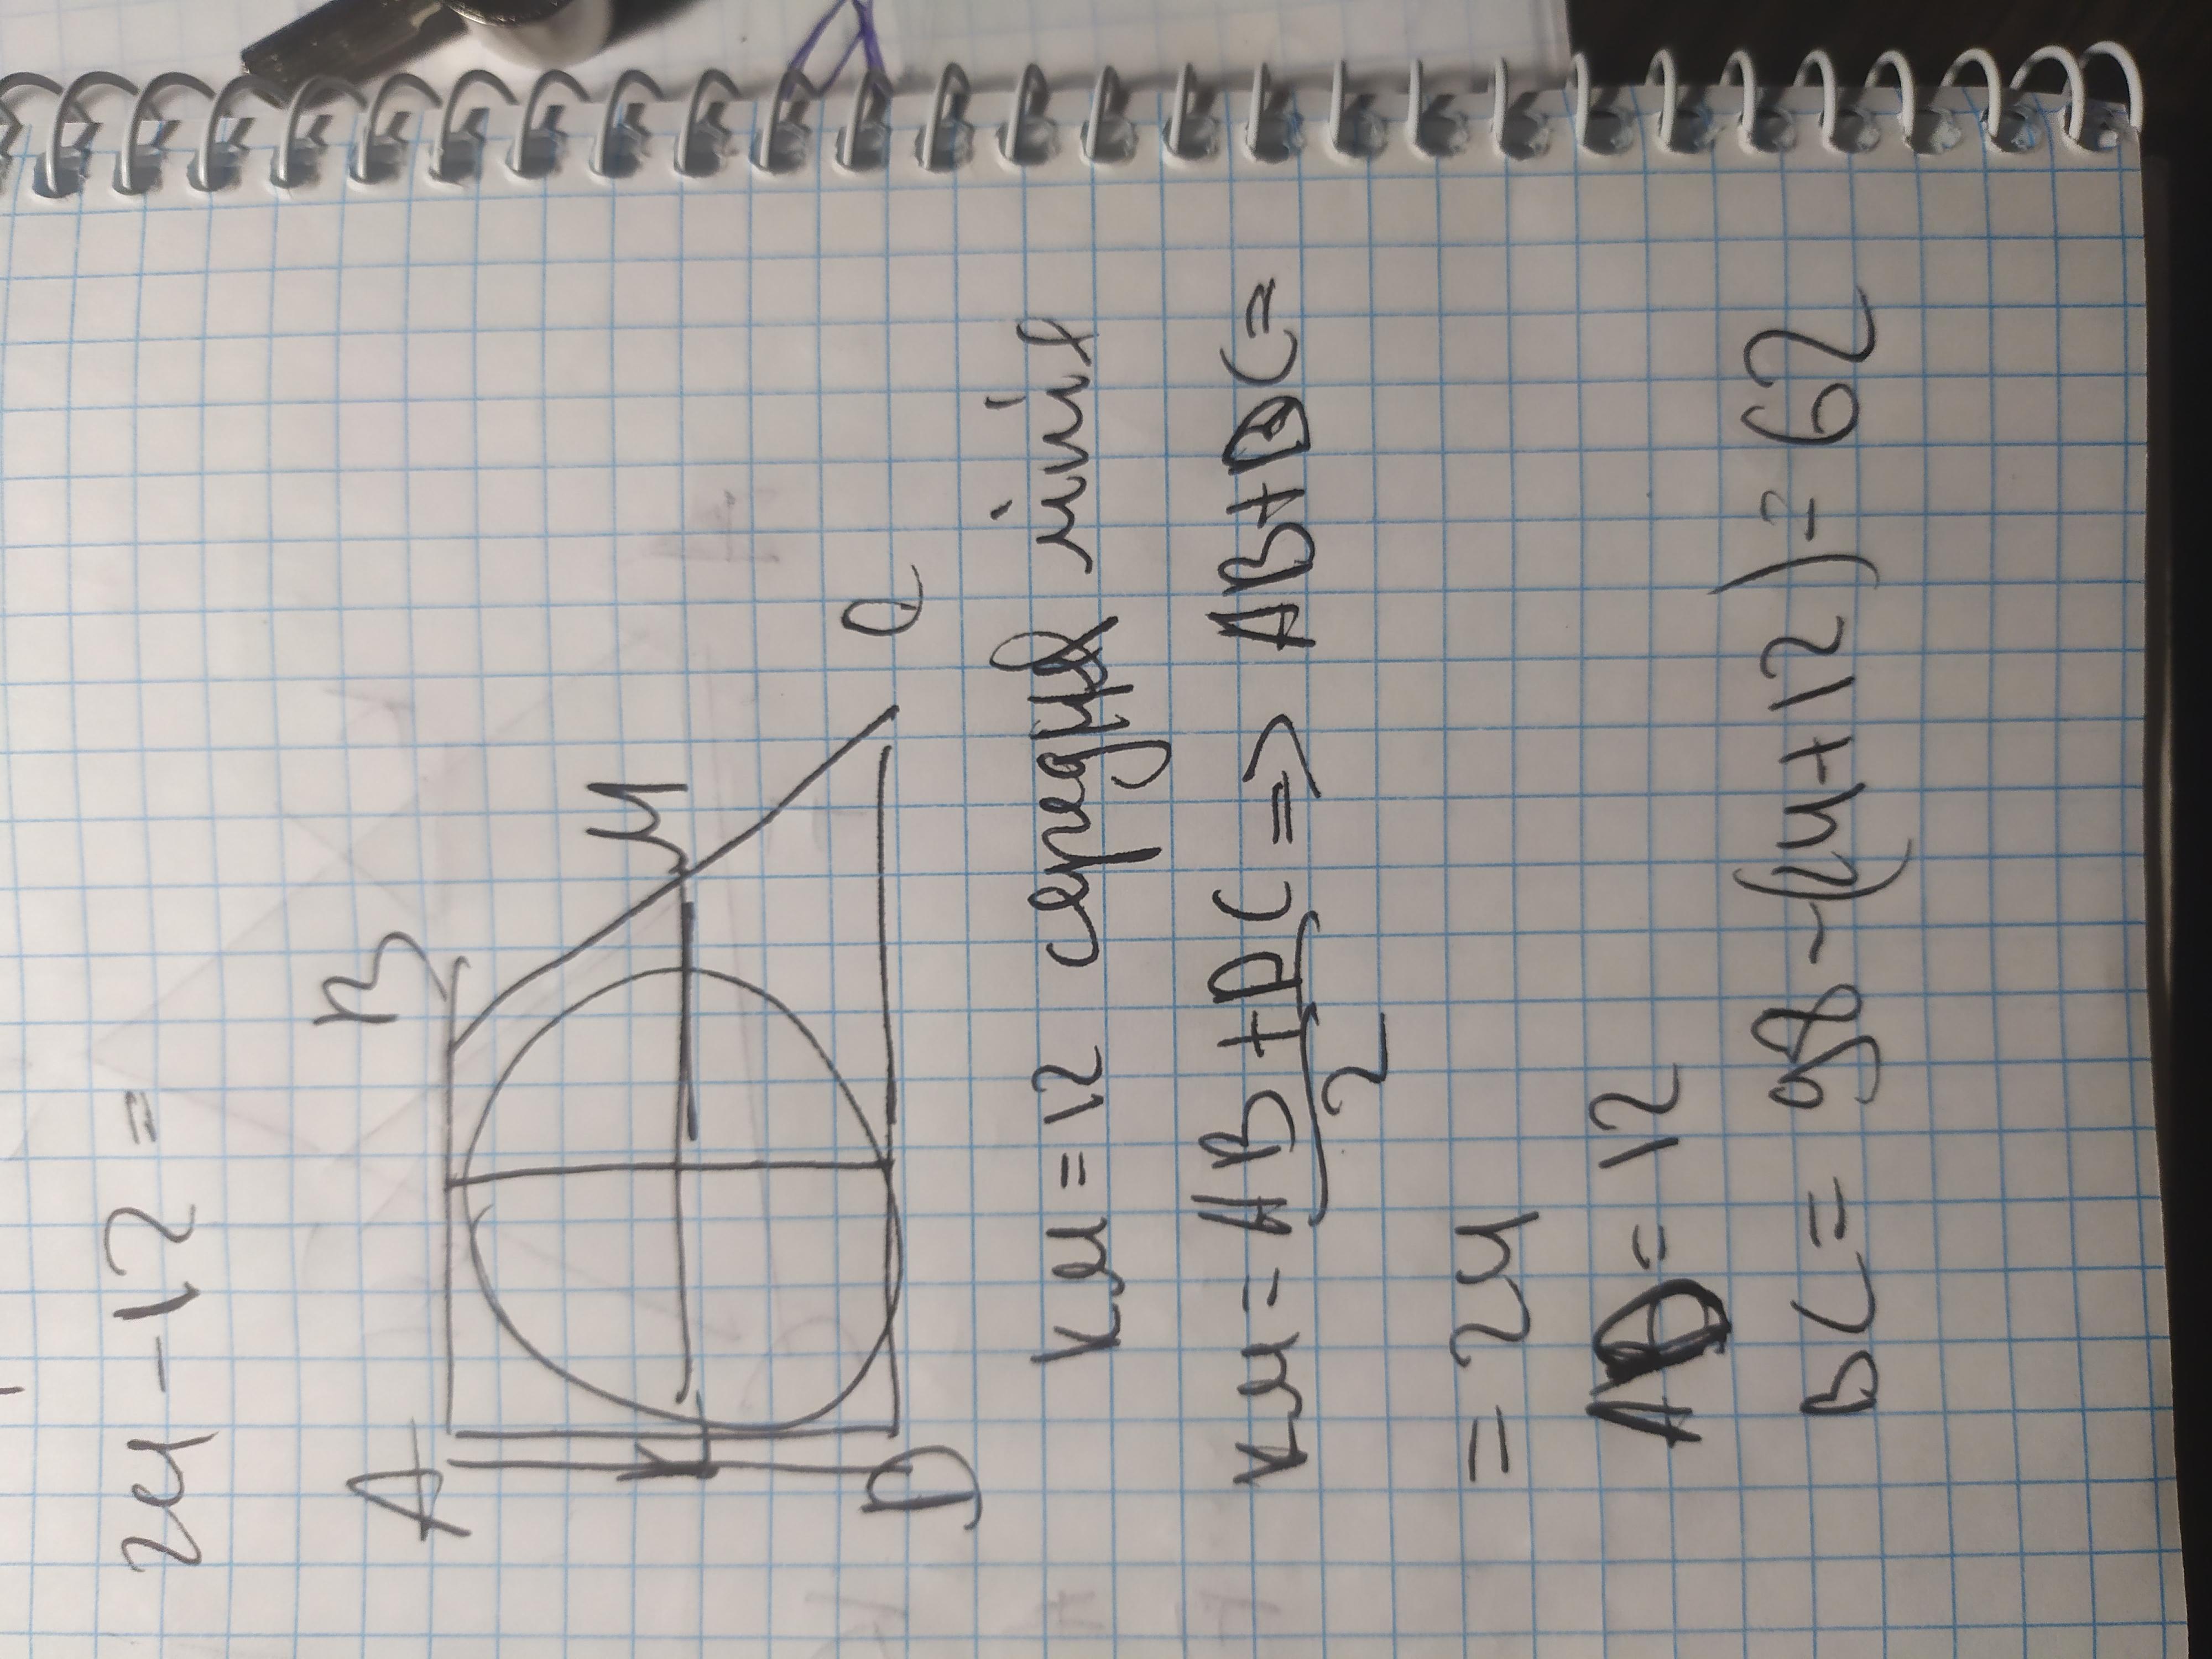 24-12=
A B
K M
D C
KM=12 середня лінія
KM=AB+DC/2 => AB+DC=
=24
AD=12
BC=98-(24+12)=62